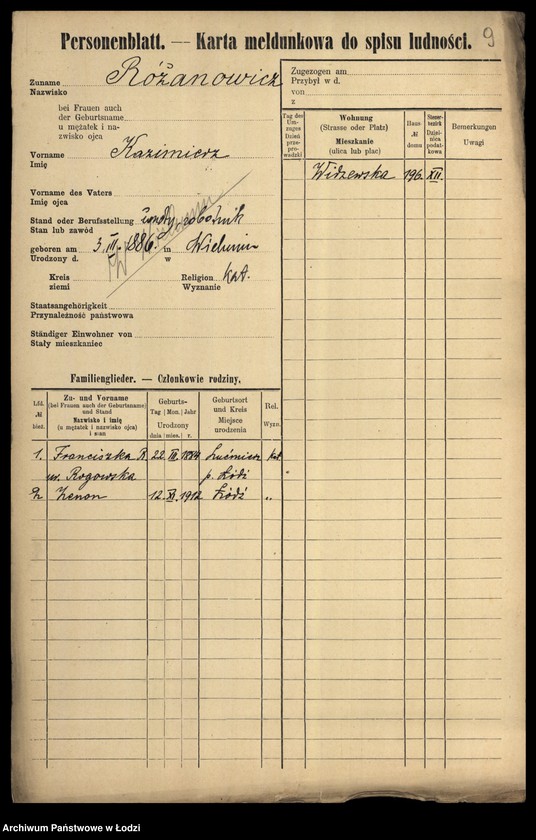 Personenblatt. — Karta meldunkowa do spisu ludności.
9
Zuname Różanowicz
Nazwisko
bei Frauen auch
der Geburtsname
u mężatek i na-
zwisko ojca
Vorname Kazimierz
Imię
Vorname des Vaters
Imię ojca
Stand oder Berufsstellung robotnik
Stan lub zawód
geboren am 3. III. 1886 in Wieluniu
Urodzony d. w
Kreis
ziemi
Religion Kat.
Wyznanie
Staatsangehörigkeit
Przynależność państwowa
Ständiger Einwohner von
Stały mieszkaniec
Zugezogen am
Przybył w d.
von
z
Tag des Um-zuges Dzień prze-pro-wadzki
Wohnung (Strasse oder Platz) Mieszkanie (ulica lub plac)
Haus № domu
Steuer-bezirk Dziel-nica podat-kowa
Bemerkungen Uwagi
Widzewska 196 XII.
Familienglieder. — Członkowie rodziny.
Lfd. № bież.
Zu- und Vorname (bei Frauen auch der Geburtsname) und Stand Nazwisko i imię (u mężatek i nazwisko ojca) i stan
Geburts- Tag Mon. Jahr Urodzony dnia mies. r.
Geburtsort und Kreis Miejsce urodzenia
Rel. Wyzn.
1. Franciszka R. 22 III 1884 Lućmierz kat
ur. Rogowska p. Łódź "
2. Zenon 12. XI. 1912 Łódź "
Archiwum Państwowe w Łodzi